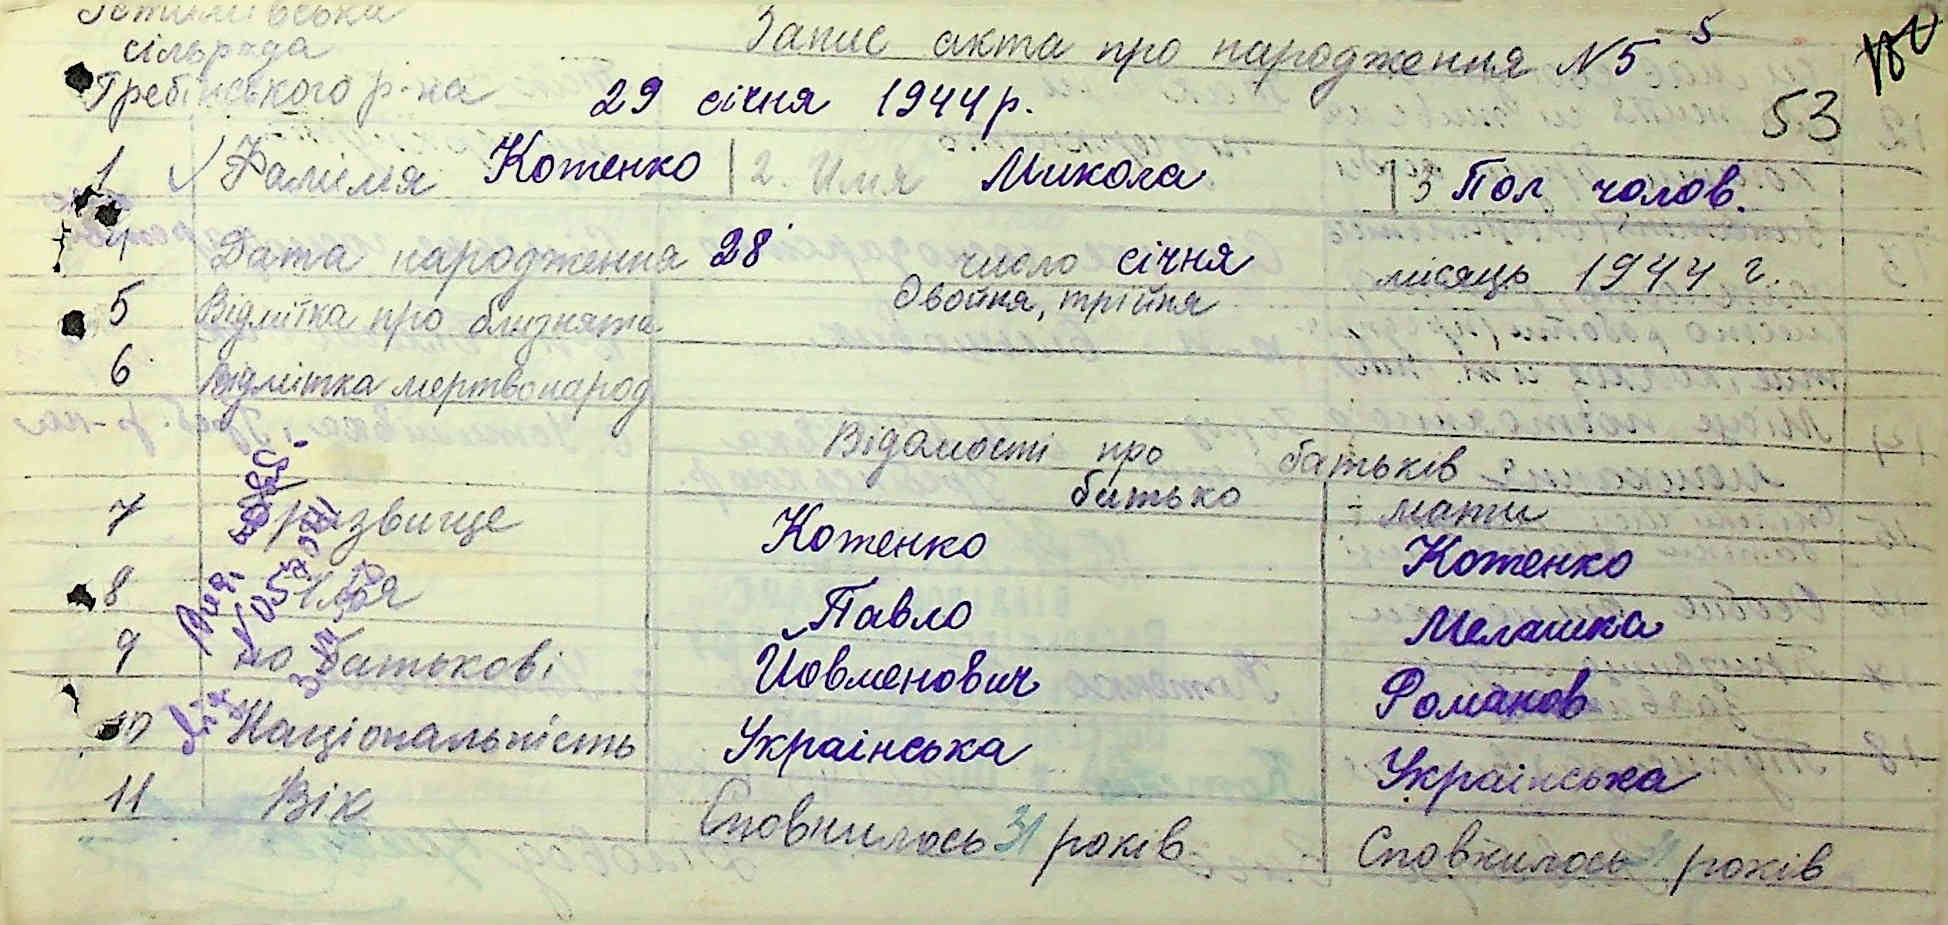 Устимівська
сільрада
Гребінського р-на
Запис акта про народження N 5 5
53
29 січня 1944 р.
1 Фамілія Котенко 2. Имя Микола 3 Пол чолов.
4 Дата народження 28 число січня місяць 1944 г.
5 Відмітка про близнята Двойня, трійня
6 Відмітка мертвонарод
Відомості про батьків
батько мати
7 Призвище Котенко Котенко
8 Імя Павло Мелашка
9 по батькові Йовменович Романов
10 Національність Українська Українська
11 Вік Сповнилось 31 років Сповнилось років